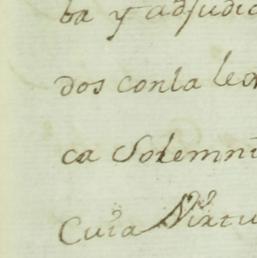 ba y adjudic
dos conla leg
ca Solemni
Cuia Virtu